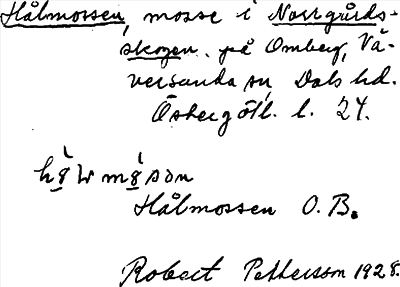 Hålmossen, mosse i Norrgårds-
skogen på Omberg, Vä-
versunda sn, Dals hd.
Östergötl. l. 24.
Hålmossen O.B.
Robert Pettersson 1928.